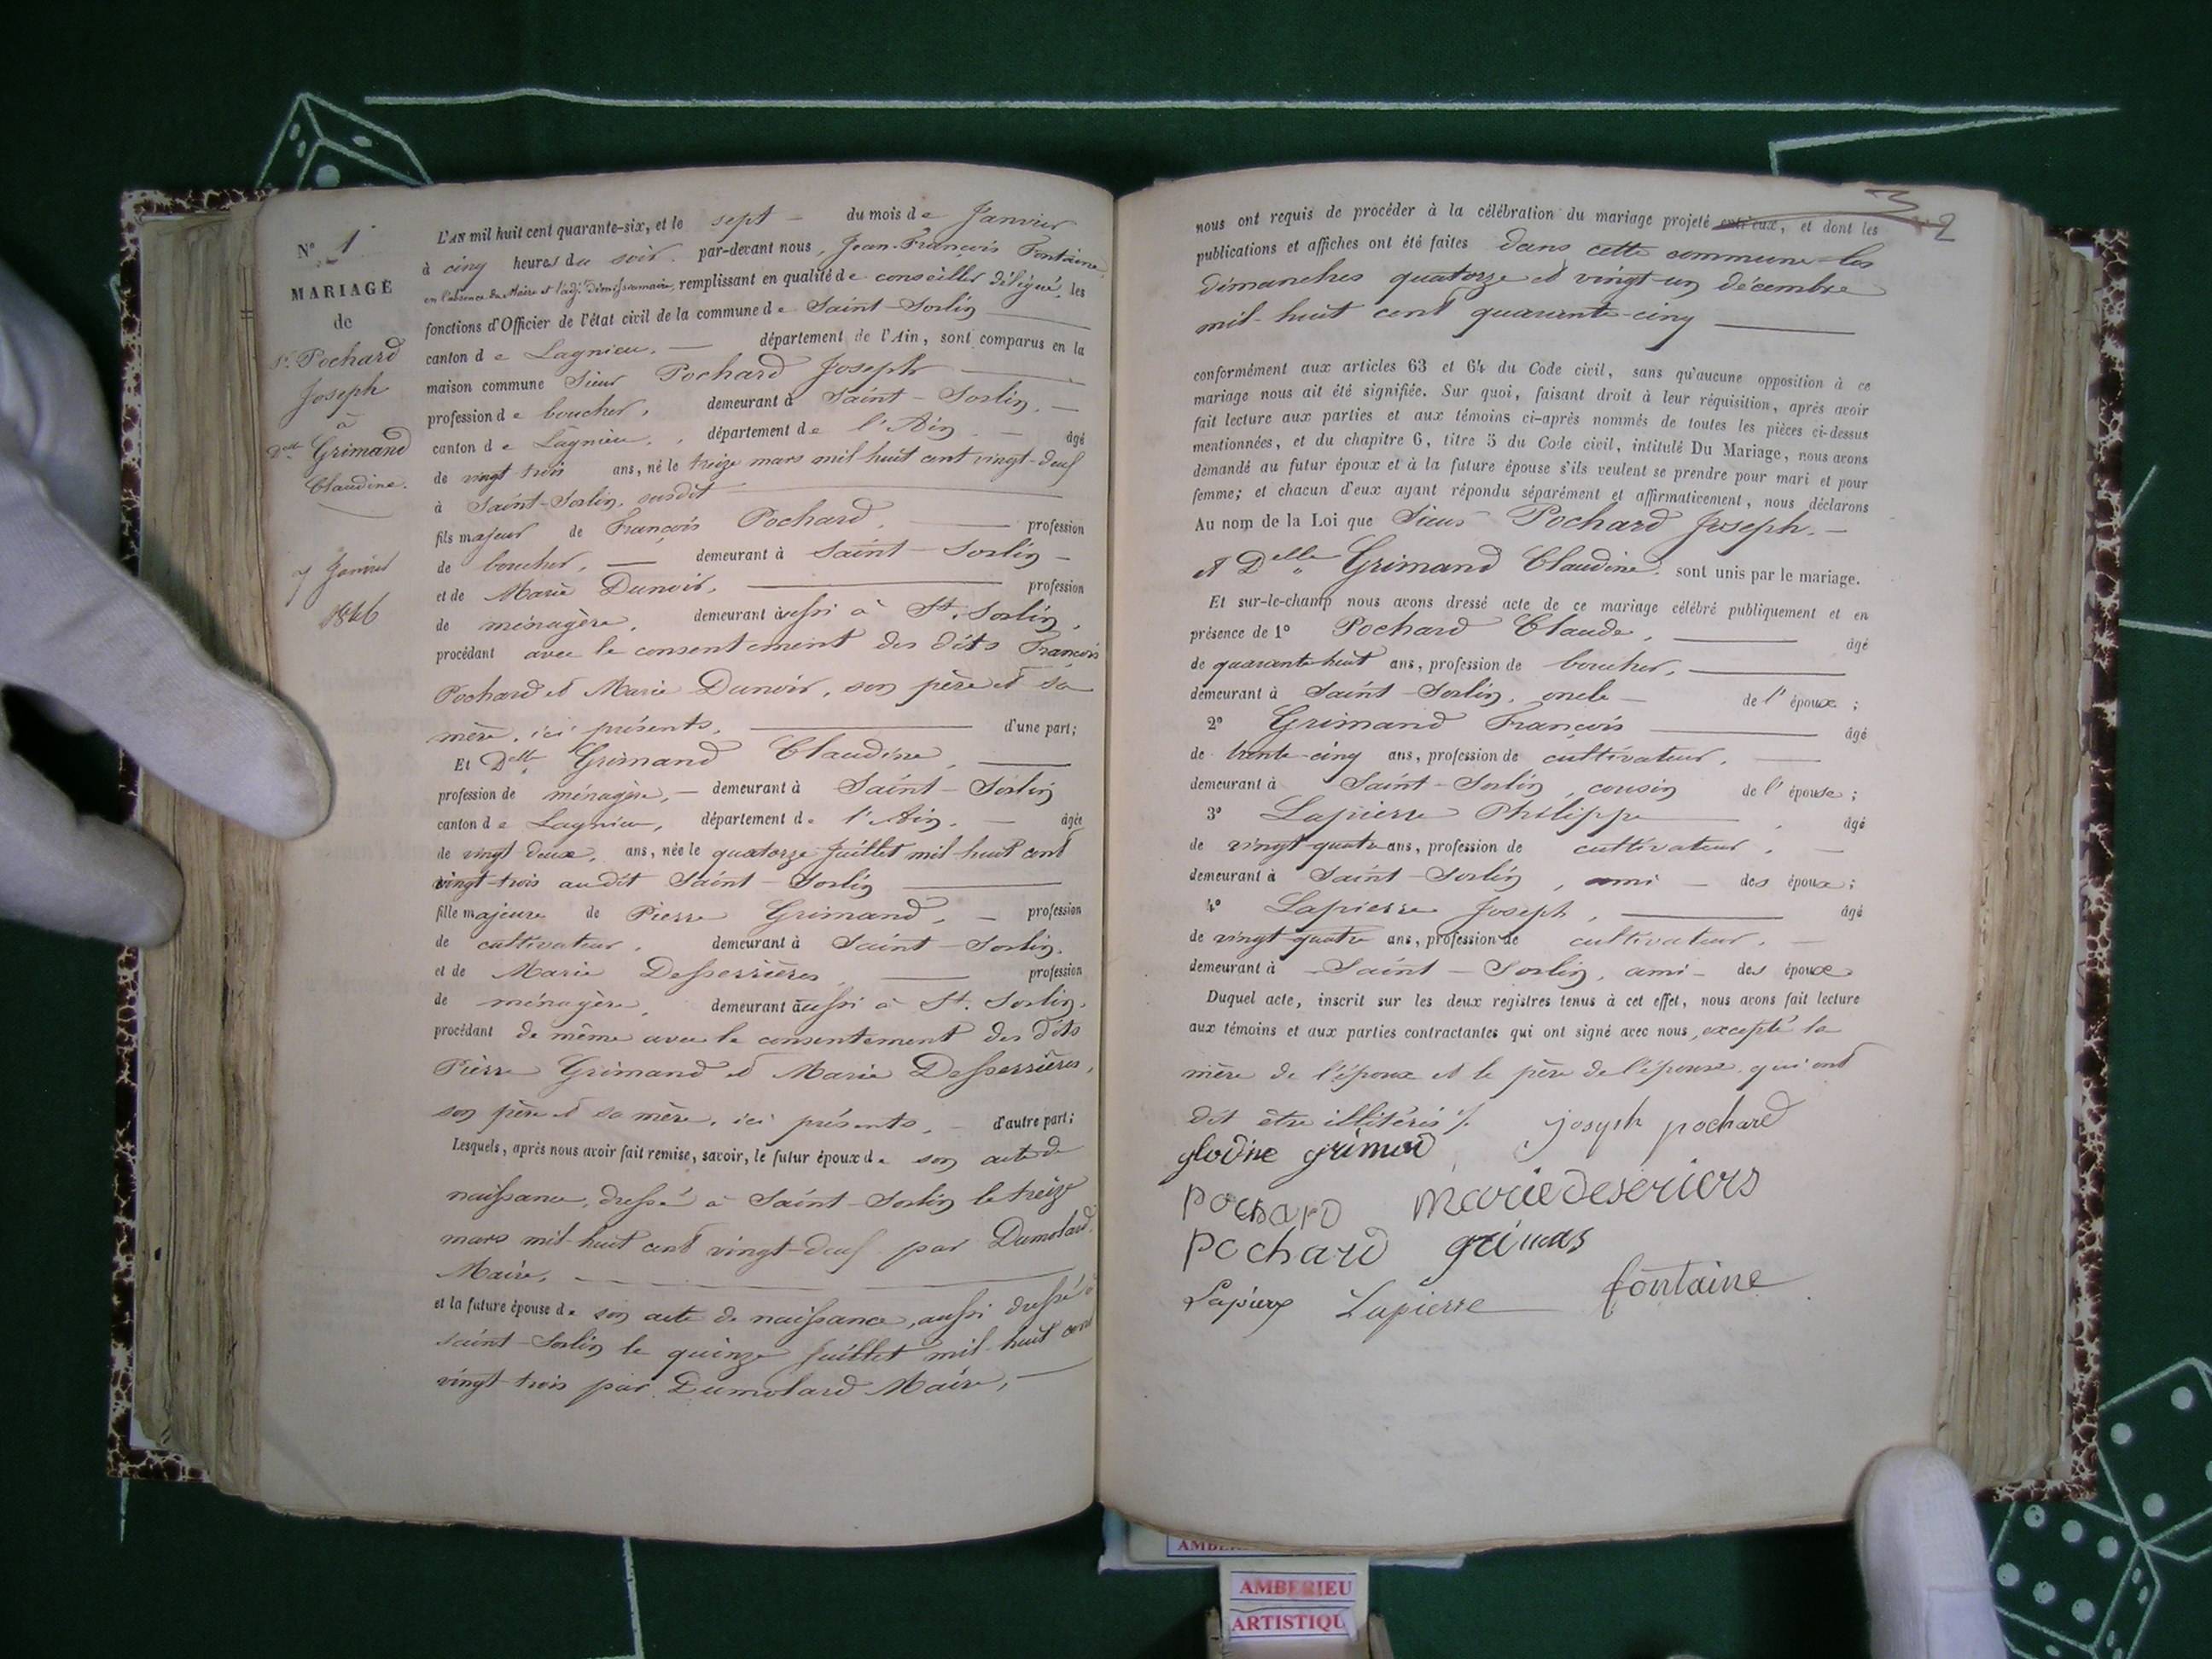 N° 1
MARIAGE
de
Sr. Pochard
Joseph
à
Delle Grimand
Claudine.
7 Janvier
1846
L'AN mil huit cent quarante-six, et le sept du mois de Janvier
à cinq heures du soir. par-devant nous, Jean-François Fontaine,
en l'absence du Maire et l'adj. démissionnaire, remplissant en qualité de conseiller délégué, les
fonctions d'Officier de l'état civil de la commune de Saint-Sorlin
canton de Lagnieu, département de l'Ain, sont comparus en la
maison commune Sieur Pochard Joseph
profession de boucher, demeurant à Saint-Sorlin,
canton de Lagnieu, département de l'Ain âgé
de vingt trois ans, né le treize mars mil huit cent vingt-deux
à Saint-Sorlin, susdit
fils majeur de François Pochard, profession
de boucher, demeurant à Saint-Sorlin
et de Marie Dunoir, profession
de ménagère, demeurant aussi à St. Sorlin,
procédant avec le consentement des dits François
Pochard et Marie Dunoir, son père et sa
mère, ici présents, d'une part;
Et Delle Grimand Claudine,
profession de ménagère, demeurant à Saint-Sorlin
canton de Lagnieu, département de l'Ain, âgée
de vingt-deux, ans, née le quatorze Juillet mil huit cent
vingt-trois au dit Saint-Sorlin
fille majeure de Pierre Grimand, profession
de cultivateur, demeurant à Saint-Sorlin,
et de Marie Desserrières profession
de ménagère, demeurant aussi à St. Sorlin,
procédant de même avec le consentement des dits
Pierre Grimand et Marie Desserrières,
son père et sa mère, ici présents, d'autre part;
Lesquels, après nous avoir fait remise, savoir, le futur époux de son acte de
naissance, dressé à Saint-Sorlin le treize
mars mil-huit cent vingt-deux par Dumolard,
Maire,
et la future épouse de son acte de naissance, aussi dressé à
saint-Sorlin le quinze Juillet mil-huit cent
vingt-trois par Dumolard Maire,
2
nous ont requis de procéder à la célébration du mariage projeté entr'eux, et dont les
publications et affiches ont été faites dans cette commune les
dimanches quatorze et vingt-un décembre
mil-huit cent quarante-cinq
conformément aux articles 63 et 64 du Code civil, sans qu'aucune opposition à ce
mariage nous ait été signifiée. Sur quoi, faisant droit à leur réquisition, après avoir
fait lecture aux parties et aux témoins ci-après nommés de toutes les pièces ci-dessus
mentionnées, et du chapitre 6, titre 5 du Code civil, intitulé Du Mariage, nous avons
demandé au futur époux et à la future épouse s'ils veulent se prendre pour mari et pour
femme; et chacun d'eux ayant répondu séparément et affirmativement, nous déclarons
Au nom de la Loi que Sieur Pochard Joseph.
et Delle Grimand Claudine. sont unis par le mariage.
Et sur-le-champ nous avons dressé acte de ce mariage célébré publiquement et en
présence de 1° Pochard Claude, âgé
de quarante-huit ans, profession de boucher,
demeurant à Saint-Sorlin, oncle de l'époux;
2° Grimand François âgé
de trente-cinq ans, profession de cultivateur,
demeurant à Saint-Sorlin, cousin de l'épouse;
3° Lapierre Philippe âgé
de vingt-quatre ans, profession de cultivateur,
demeurant à Saint-Sorlin, ami des époux;
4° Lapierre Joseph, âgé
de vingt quatre ans, profession de cultivateur,
demeurant à Saint-Sorlin, ami des époux
Duquel acte, inscrit sur les deux registres tenus à cet effet, nous avons fait lecture
aux témoins et aux parties contractantes qui ont signé avec nous, excepté la
mère de l'époux et le père de l'épouse qui ont
dit être illitérés /.
joseph pochard
glodine grimod
Pochard mariedeseriers
Pochard
Lapierre Lapierre fontaine
AMBERIEU
ARTISTIQU